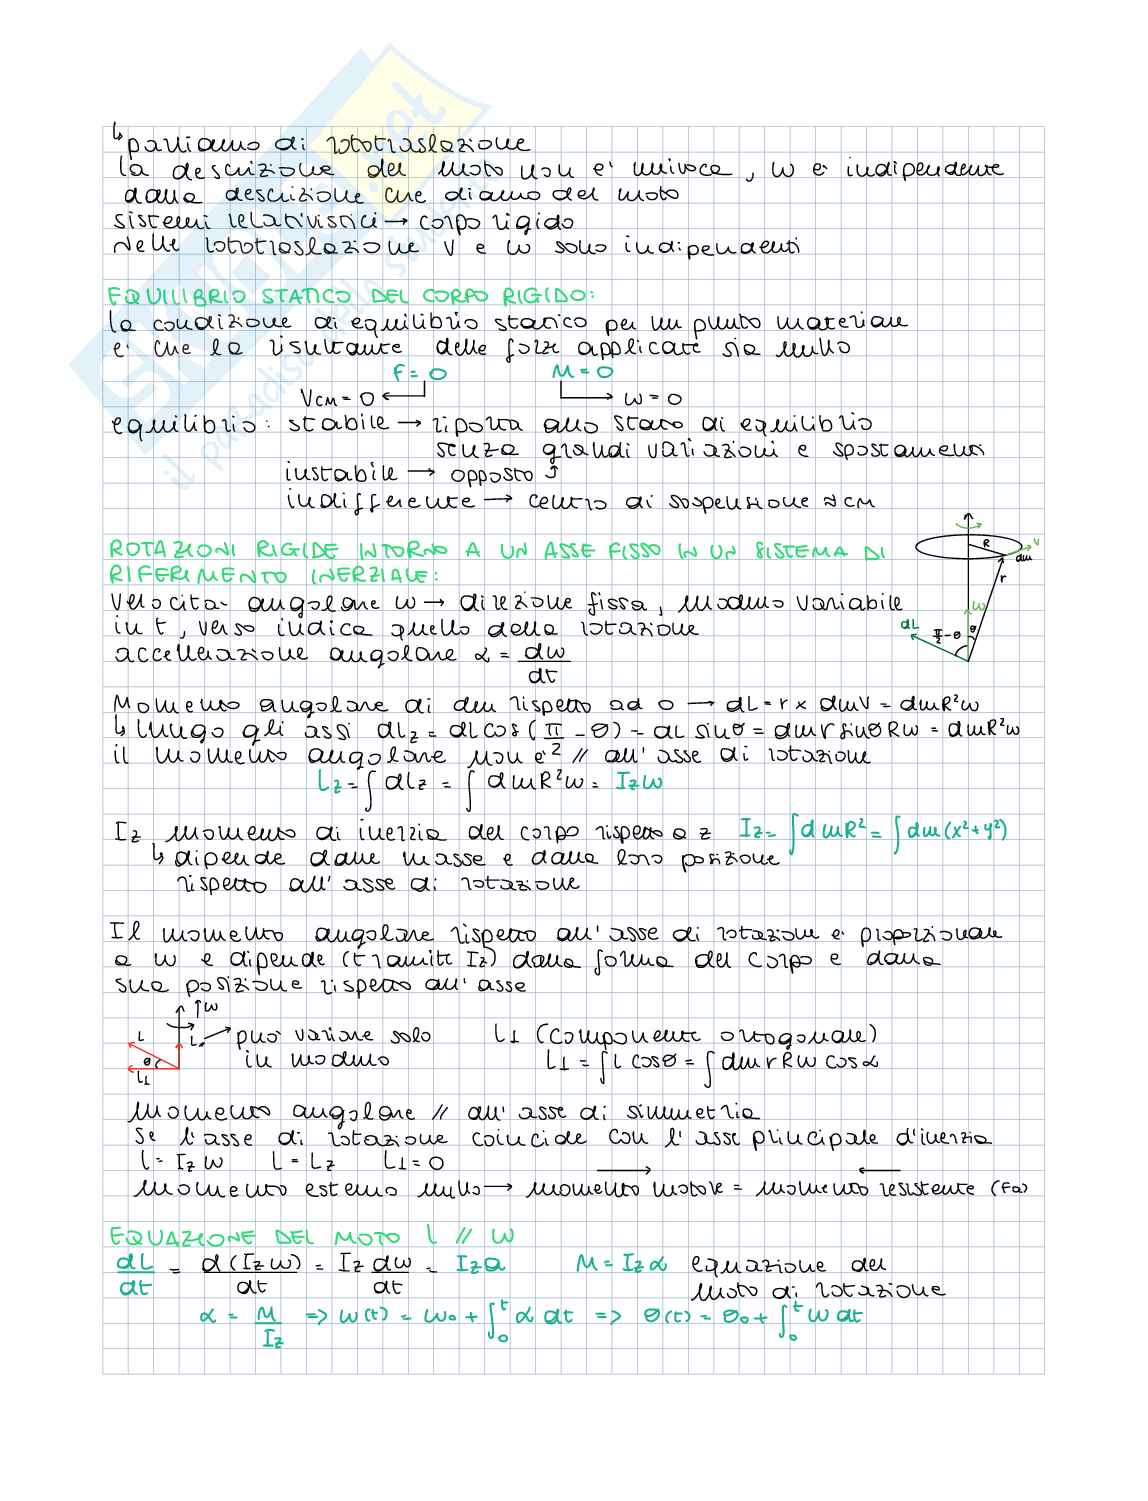 ↳ parliamo di rototraslazione
la descrizione del moto non e' univoca, w e' indipendente
dalla descrizione che diamo del moto
sistemi relativistici → corpo rigido
nelle rototraslazione v e w sono indipendenti
EQUILIBRIO STATICO DEL CORPO RIGIDO:
la condizione di equilibrio statico per un punto materiale
e' che la risultante delle forze applicate sia nullo
F = 0 M = 0
VCM = 0 ← → w = 0
equilibrio: stabile → riporta allo stato di equilibrio
senza grandi variazioni e spostamenti
instabile → opposto ↑
indifferente → centro di sospensione ≈ CM
ROTAZIONI RIGIDE INTORNO A UN ASSE FISSO IN UN SISTEMA DI
RIFERIMENTO INERZIALE:
Velocita' angolare w → direzione fissa, modulo variabile
in t, verso indica quello della rotazione
accelerazione angolare α = dw/dt
R v dm r w dL π/2 - θ θ
Momento angolare di dm rispetto ad O → dL = r × dmV = dmR²w
↳ lungo gli assi dLz = dL cos(π/2 - θ) = dL sinθ = dm r sinθ Rw = dmR²w
il momento angolare non e' // all'asse di rotazione
Lz = ∫ dLz = ∫ dmR²w = Iz w
Iz momento di inerzia del corpo rispetto a z Iz = ∫ dmR² = ∫ dm (x² + y²)
↳ dipende dalle masse e dalla loro posizione
rispetto all'asse di rotazione
Il momento angolare rispetto all'asse di rotazione e' proporzionale
a w e dipende (tramite Iz) dalla forma del corpo e dalla
sua posizione rispetto all'asse
↑w
L Lz → puo' variare solo L⊥ (componente ortogonale)
θ in modulo L⊥ = ∫ L cosθ = ∫ dm r R w cosα
L⊥
Momento angolare // all'asse di simmetria
Se l'asse di rotazione coincide con l'asse principale d'inerzia
L = Iz w L = Lz L⊥ = 0
Momento esterno nullo → momento motore = momento resistente (Fa)
EQUAZIONE DEL MOTO L // W
dL/dt = d(Iz w)/dt = Iz dw/dt = Iz α M = Iz α equazione del
moto di rotazione
α = M/Iz => w(t) = w₀ + ∫₀ᵗ α dt => θ(t) = θ₀ + ∫₀ᵗ w dt